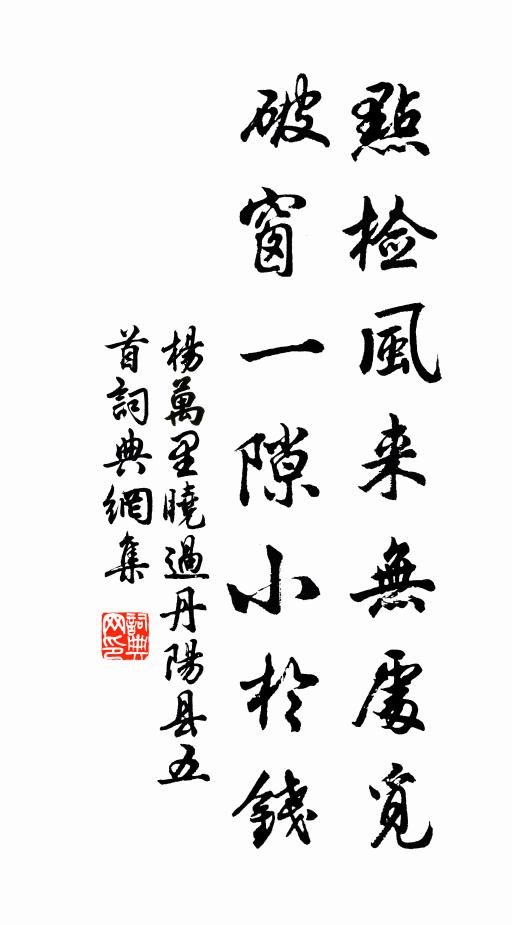 點檢風来無處覓
破窗一隙小於錢
楊萬里曉過丹陽县五
首詞典網集
詞典网印